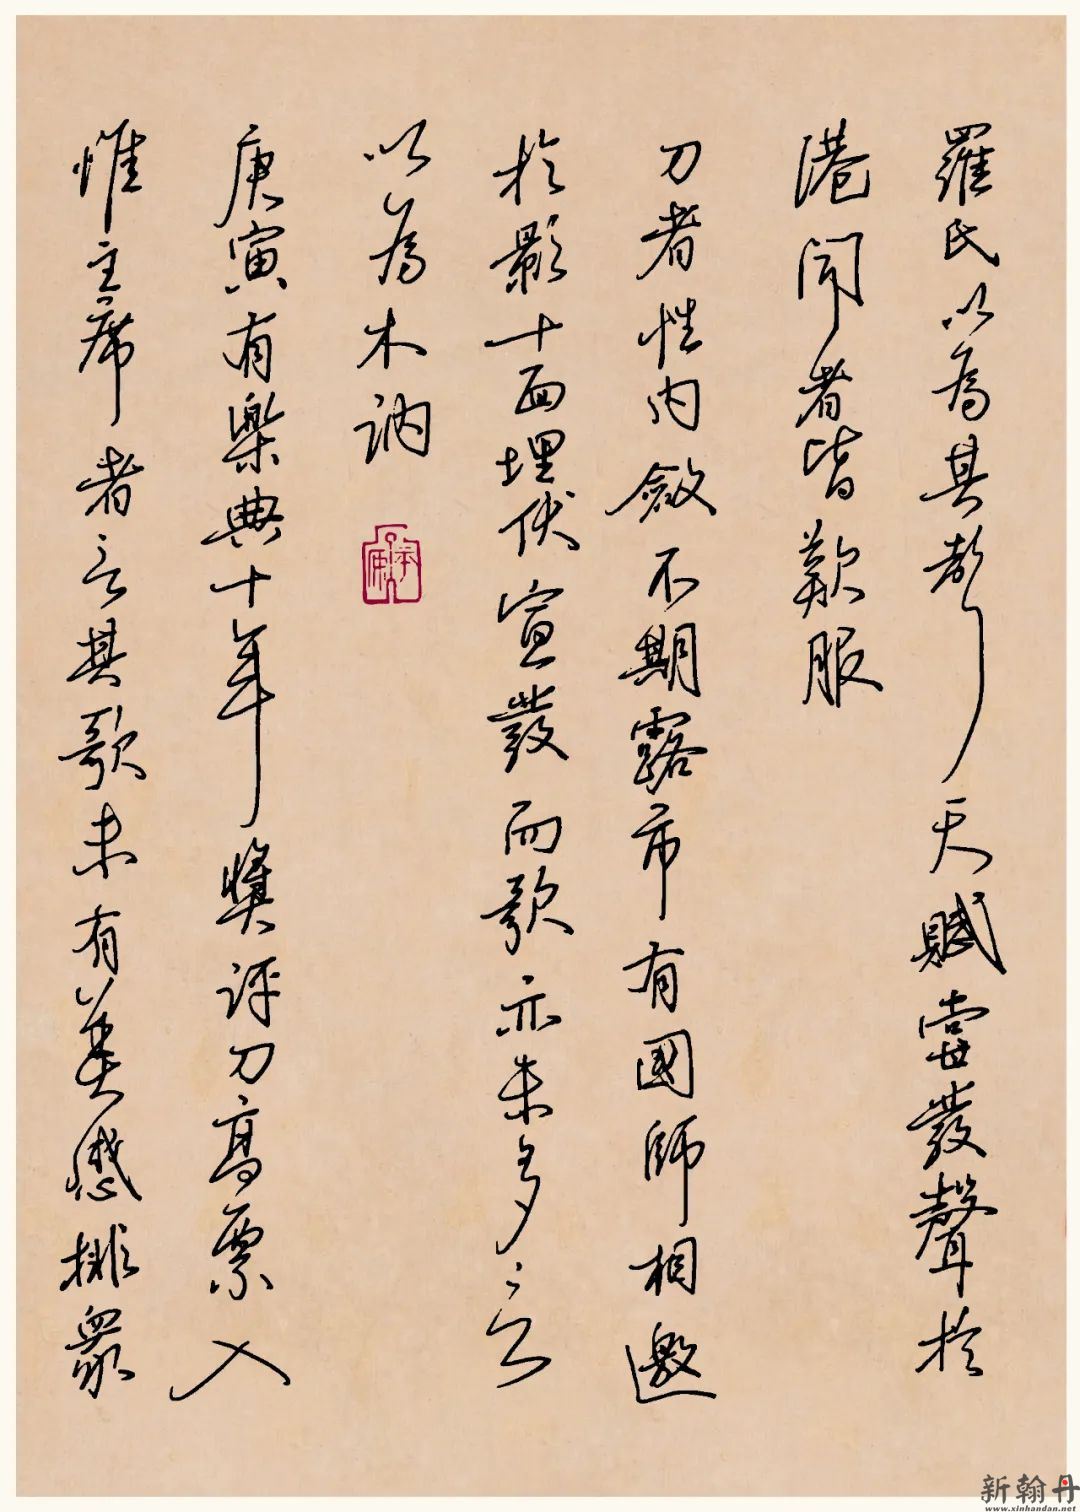 羅氏以為其天賦發聲於
港聞者皆歎服
刀者性內斂不期露市有國師相邀
於影十面埋伏宣發而歌亦未多言
以為木訥
庚寅有樂典十年獎評刀高票入
惟主席者言其歌未有美感排眾
新翰丹
www.xinhandan.net